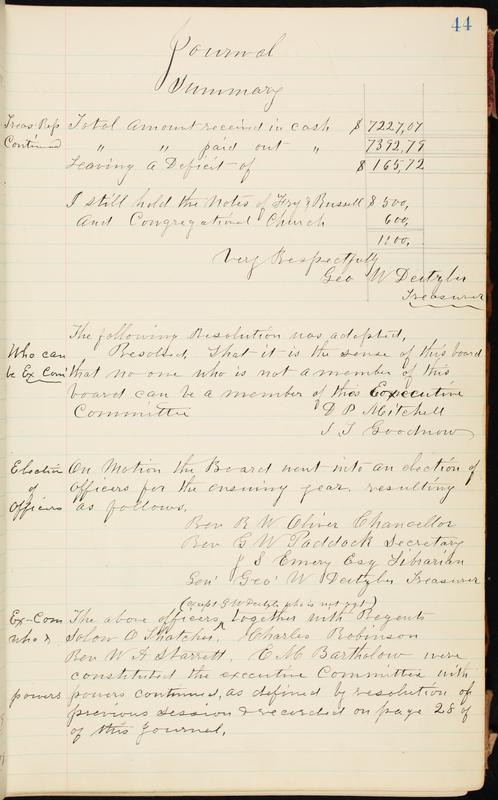 44
Journal
Summary
Treas Rep Total Amount received in cash $ 7227,07
Continued " " paid out " 7392,79
Leaving a Deficit of $ 165,72
I still hold the Notes of Fry & Russell $ 500,
And Congregational Church 600,
1100,
Very Respectfully
Geo W Deitzler
Treasurer
The following Resolution was adopted,
Who can Resolved, That it is the sense of this board
be Ex Com that no one who is not a member of this
board can be a member of this Executive
Committee D P Mitchell
I T Goodnow
Election On Motion the Board went into an election of
of officers for the ensuing year, resulting
officers as follows,
Rev R W Oliver Chancellor
Rev G W Paddock Secretary
J S Emery Esq Librarian
Gen' Geo' W Deitzler Treasurer
(except G W Deitzler who is not reg't)
Ex-Com The above officers, together with Regents
who & Solon O Thatcher, Charles Robinson
Rev W A Starrett, E M Bartholow were
constituted the executive Committee with
powers powers continued, as defined by resolution of
previous session & recorded on page 28 of
of this Journal,